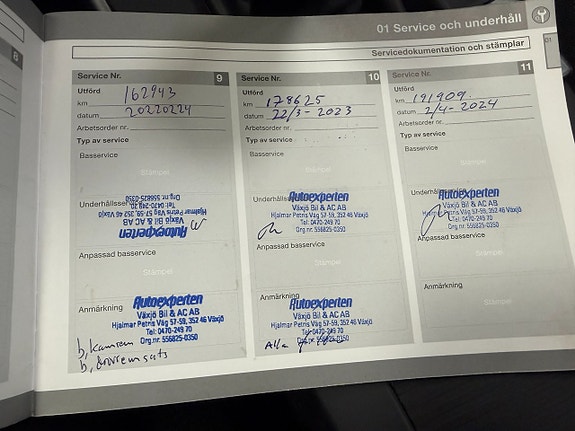 01 Service och underhåll
01
Servicedokumentation och stämplar
8
Service Nr. 9
Utförd
km 162943
datum 20220224
Arbetsorder nr.
Typ av service
Basservice
Stämpel
Underhållsservice
Autoexperten
Växjö Bil & AC AB
Hjalmar Petris Väg 57-59, 352 46 Växjö
Tel: 0470-249 70
Org.nr. 556825-0350
Anpassad basservice
Stämpel
Anmärkning
Autoexperten
Växjö Bil & AC AB
Hjalmar Petris Väg 57-59, 352 46 Växjö
Tel: 0470-249 70
Org.nr. 556825-0350
b, kamrem
b, drivremsats
Service Nr. 10
Utförd
km 178625
datum 22/3-2023
Arbetsorder nr.
Typ av service
Basservice
Stämpel
Underhållsservice
Autoexperten
Växjö Bil & AC AB
Hjalmar Petris Väg 57-59, 352 46 Växjö
Tel: 0470-249 70
Org.nr. 556825-0350
Anpassad basservice
Stämpel
Anmärkning
Autoexperten
Växjö Bil & AC AB
Hjalmar Petris Väg 57-59, 352 46 Växjö
Tel: 0470-249 70
Org.nr. 556825-0350
Alla
Service Nr. 11
Utförd
km 191909.
datum 2/4-2024
Arbetsorder nr.
Typ av service
Basservice
Stämpel
Underhållsservice
Autoexperten
Växjö Bil & AC AB
Hjalmar Petris Väg 57-59, 352 46 Växjö
Tel: 0470-249 70
Org.nr. 556825-0350
Anpassad basservice
Stämpel
Anmärkning
Stämpel